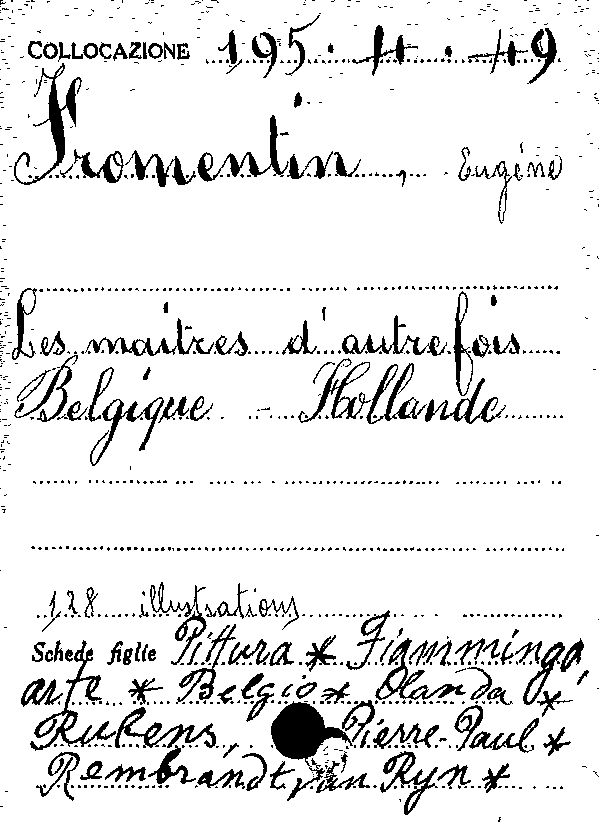 COLLOCAZIONE 195.4.49
Fromentin, Eugéne
Les maitres d'autrefois
Belgique - Hollande
128 illustrations
Schede figlie Pittura * Fiamminga,
arte * Belgio * Olanda *
Rubens, Pierre-Paul *
Rembrandt, van Ryn *